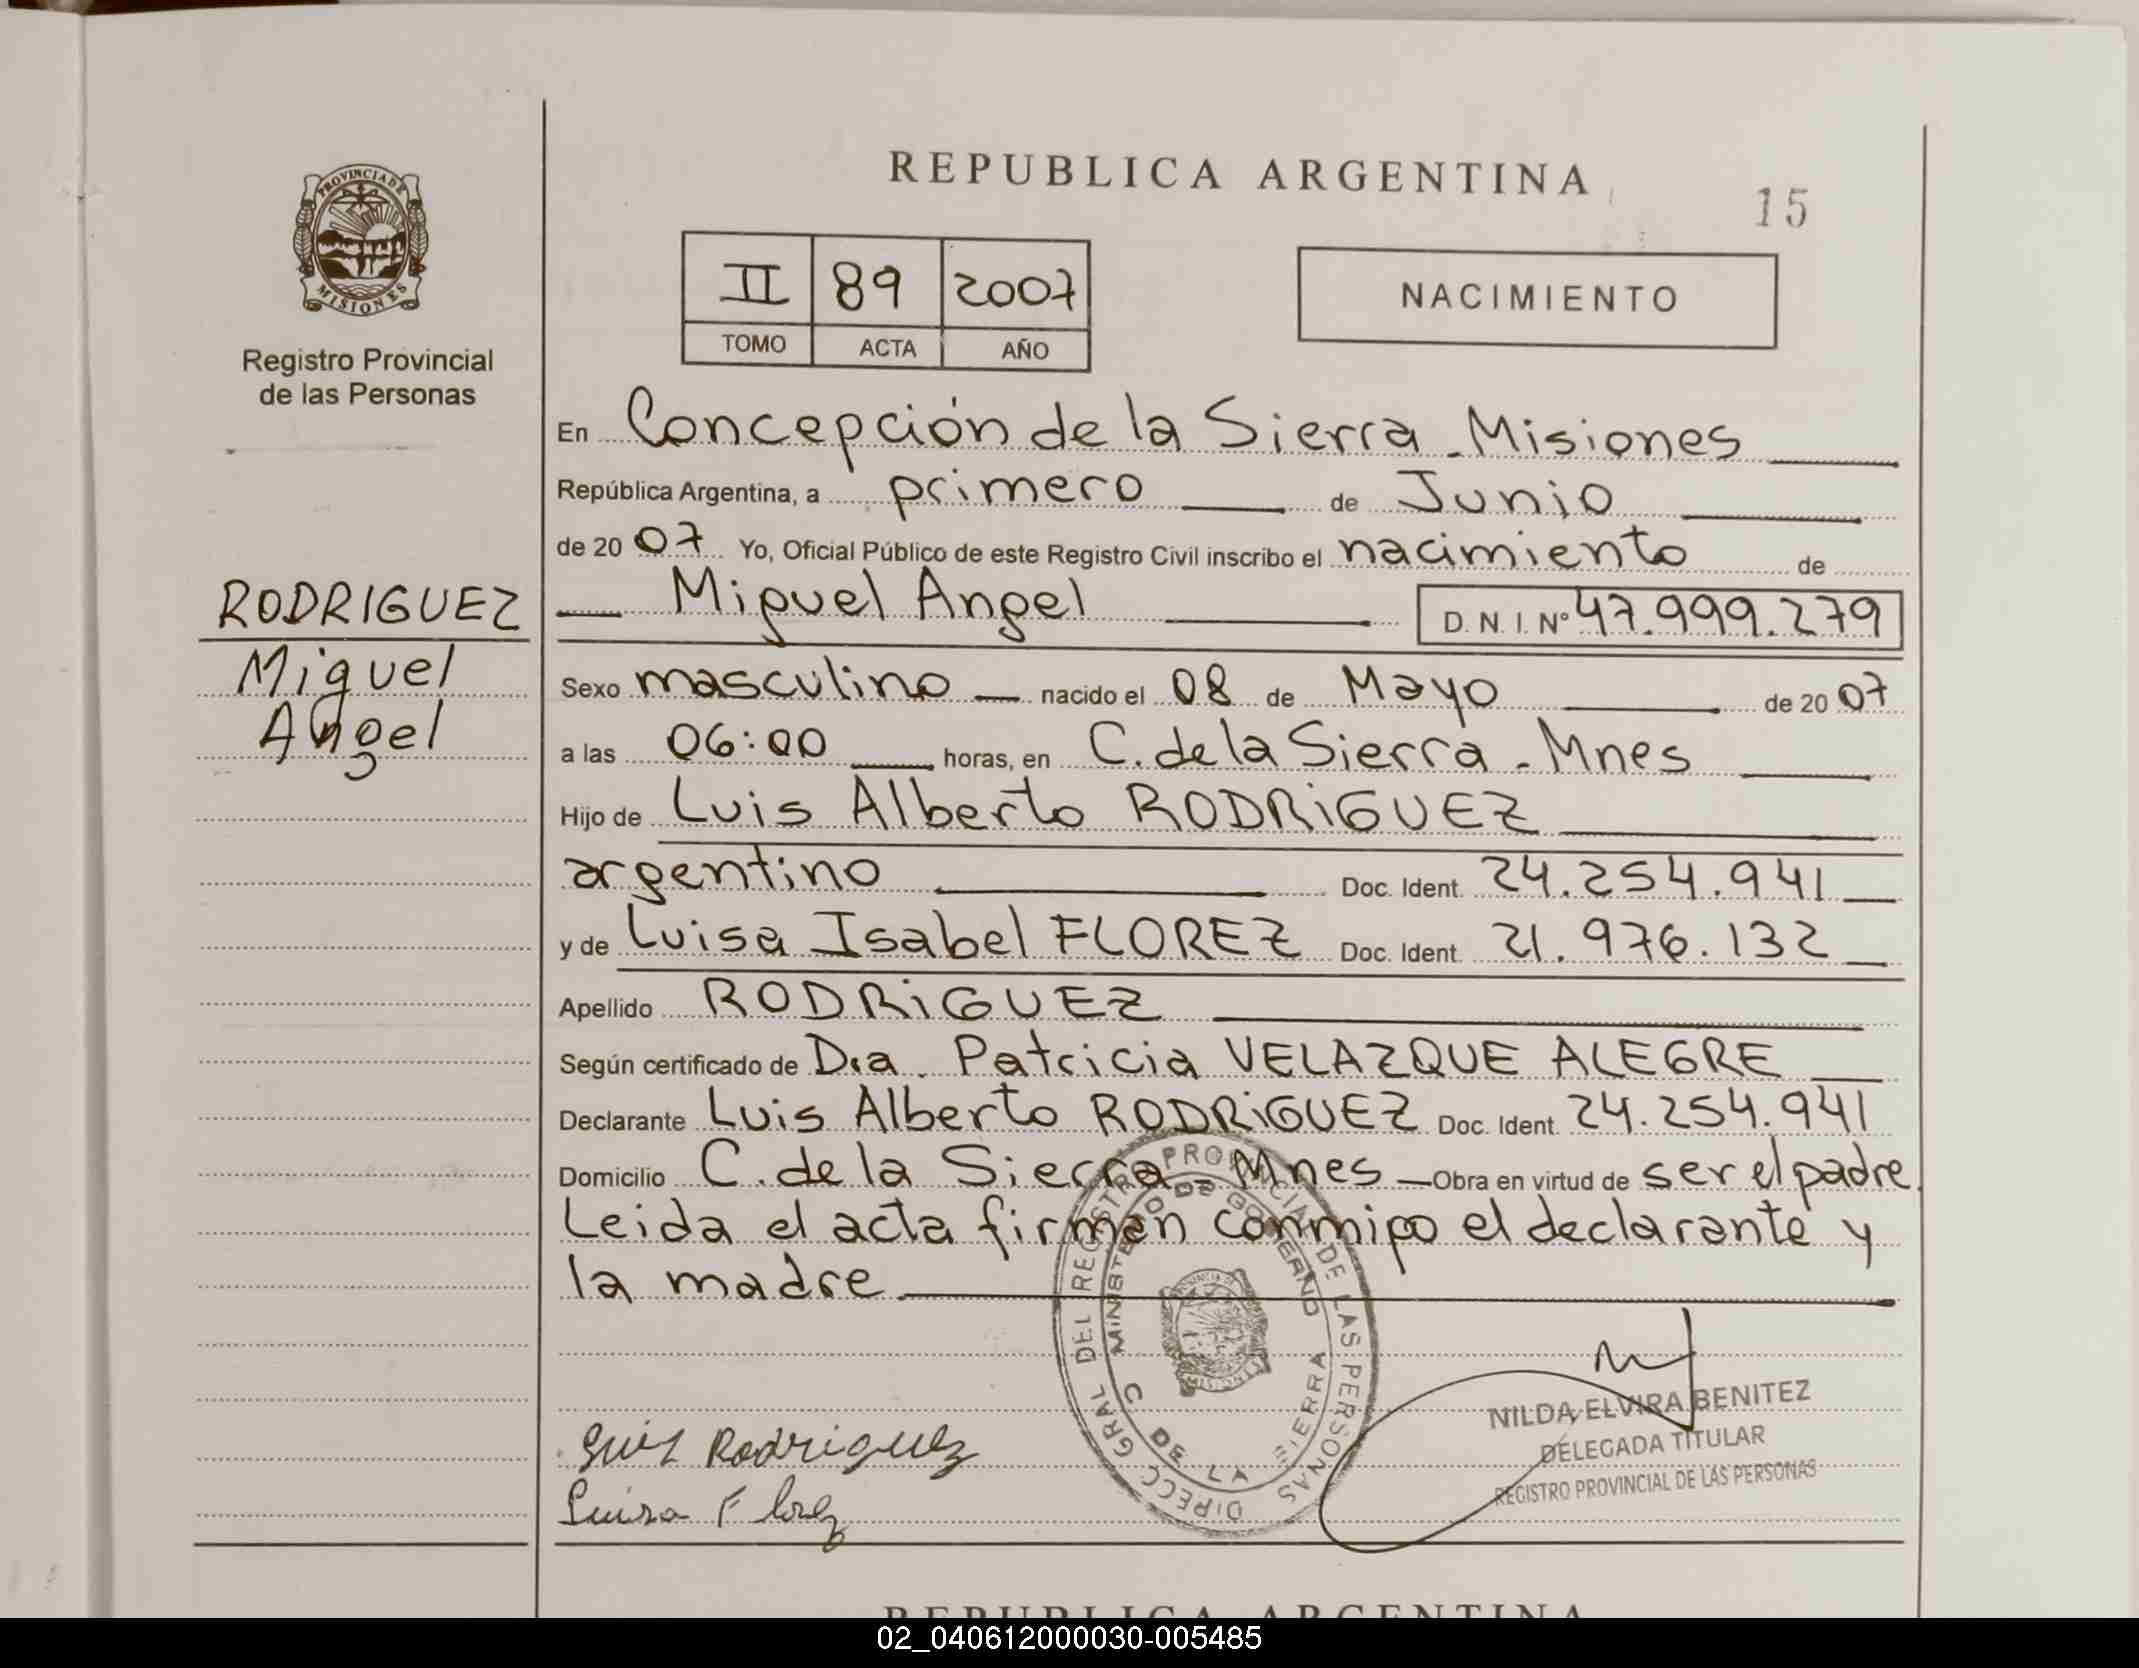 REPUBLICA ARGENTINA
15
PROVINCIA DE
MISIONES
Registro Provincial
de las Personas
II 89 2007
TOMO ACTA AÑO
NACIMIENTO
En Concepción de la Sierra - Misiones
República Argentina, a primero de Junio
de 2007 Yo, Oficial Público de este Registro Civil inscribo el nacimiento de
Miguel Angel D. N. I. Nº 47.999.279
RODRIGUEZ
Miguel
Angel
Sexo masculino nacido el 08 de Mayo de 2007
a las 06:00 horas, en C. de la Sierra - Mnes
Hijo de Luis Alberto RODRiGUEZ
argentino Doc. Ident. 24.254.941
y de Luisa Isabel FLOREZ Doc. Ident. 21.976.132
Apellido RODRiGUEZ
Según certificado de Dra. Patricia VELAZQUE ALEGRE
Declarante Luis Alberto RODRiGUEZ Doc. Ident. 24.254.941
Domicilio C. de la Sierra - Mnes Obra en virtud de ser el padre.
Leida el acta firman conmigo el declarante y
la madre
DIRECC GRAL DEL REGISTRO PROVINCIAL DE LAS PERSONAS
MINISTERIO DE GOBIERNO
C DE LA SIERRA
NILDA ELVIRA BENITEZ
DELEGADA TITULAR
REGISTRO PROVINCIAL DE LAS PERSONAS
Luis Rodriguez
Luisa Florez
REPUBLICA ARGENTINA
02_040612000030-005485